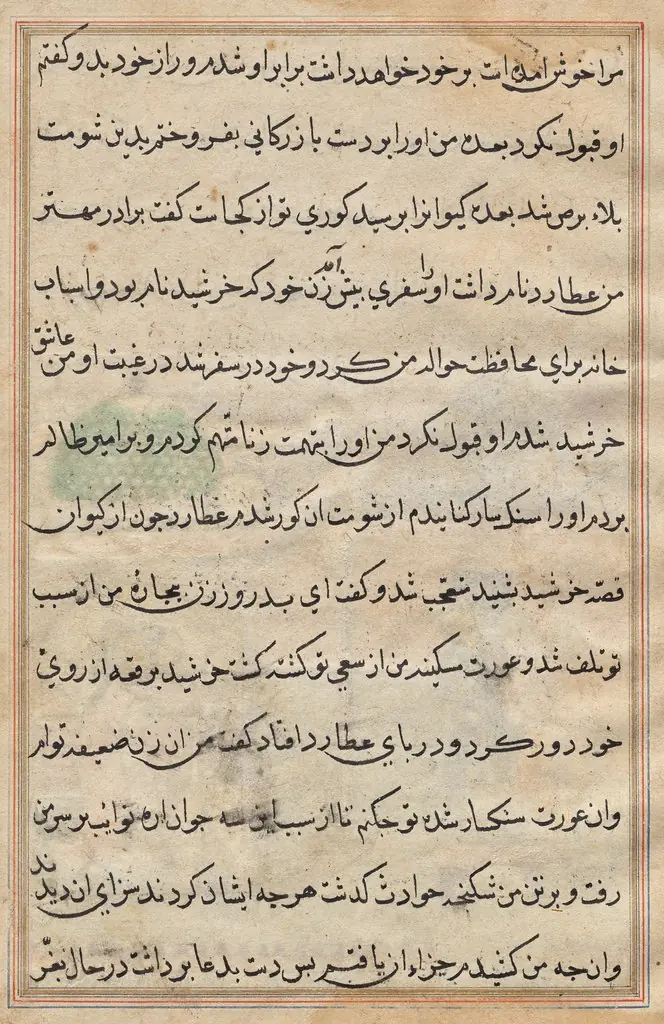 مرا خوش امده است بر خود خواهد داشت برابر او شدم و راز خود بدو کفتم
او قبول نکرد بعده من او را بر دست بازرکانی بفروختم بدین شومت
بلاء برص شد بعده کیوانرا برسید کوری تو از کجاست کفت برادر مهتر
من عطارد نام داشت او را سفری بیش آمد زن خود که خرشید نام بود و اسباب
خانه برای محافظت حواله من کرد و خود در سفر شد در غیبت او من عاشق
خرشید شدم او قبول نکرد من او را بتهمت زنا متهم کردم و بر امیر ظالم
بردم او را سنکسار کنانیدم از شومت ان کور شدم عطارد جون از کیوان
قصه خرشید بشنید متعجب شد و کفت ای بدروز زن بیجاره من از سبب
تو تلف شد و عورت مسکینه من از سعی تو کشته کشت خرشید برقعه از روی
خود دور کرد و در بای عطارد افتاد کفت من ان زن ضعیفه توام
وان عورت سنکسار شده تو جکنم تا از سبب این سه جوان اره نوایب بر سر من
رفت و بر تن من شکنجه حوادث کذشت هر جه ایشان کردند سزای ان دیدند
وان جه من کشیدم جزاء ان یافتم بس دست بدعا برداشت در حال بفر